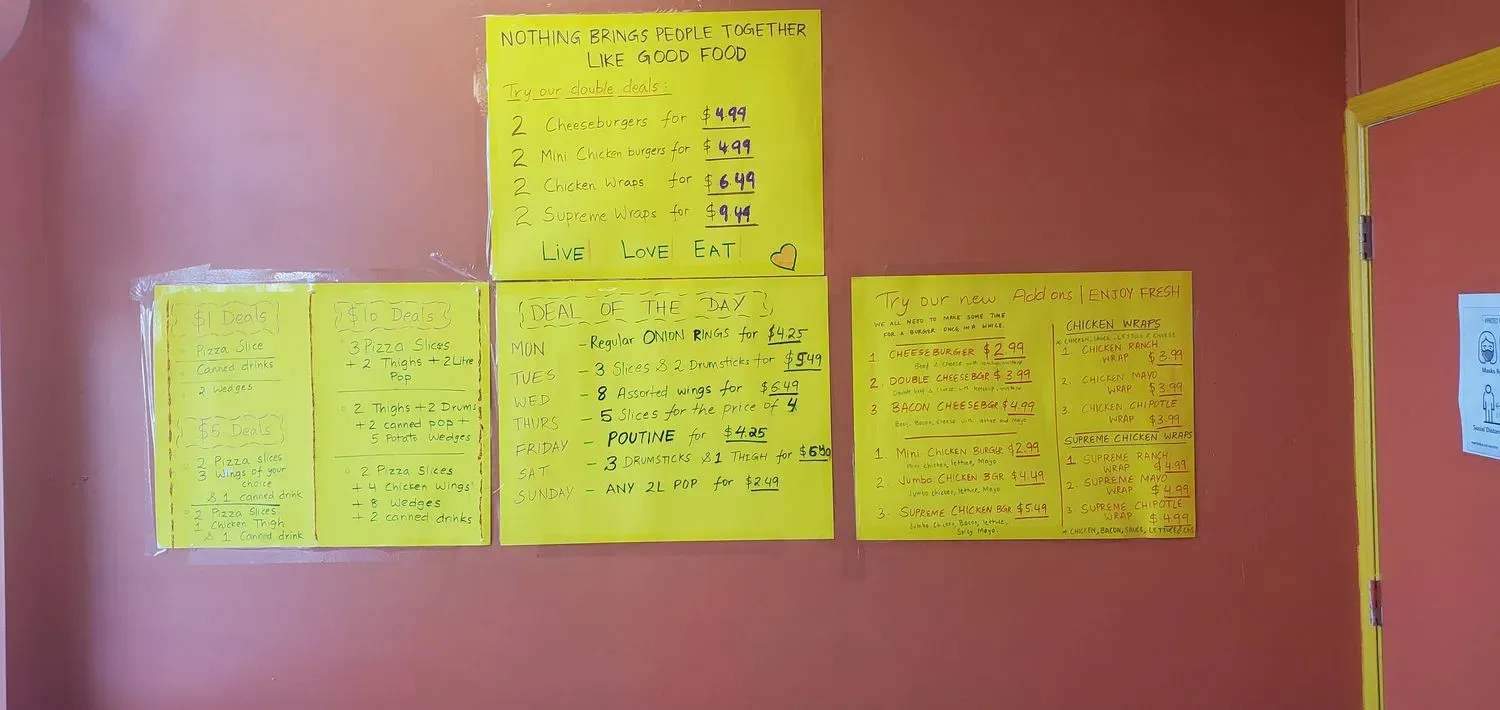 NOTHING BRINGS PEOPLE TOGETHER
LIKE GOOD FOOD
Try our double deals:
2 Cheeseburgers for $4.99
2 Mini Chicken burgers for $4.99
2 Chicken Wraps for $6.49
2 Supreme Wraps for $9.49
LIVE LOVE EAT
$1 Deals
Pizza Slice
Canned drinks
2 Wedges
$5 Deals
2 Pizza slices
3 Wings of your
choice
& 1 canned drink
2 Pizza Slices
1 Chicken Thigh
& 1 Canned drink
$10 Deals
3 Pizza Slices
+ 2 Thighs + 2 Litre
Pop
2 Thighs + 2 Drums
+ 2 canned pop +
5 Potato Wedges
2 Pizza Slices
+ 4 Chicken Wings
+ 8 Wedges
+ 2 canned drinks
DEAL OF THE DAY
MON - Regular ONION RINGS for $4.25
TUES - 3 Slices & 2 Drumsticks for $5.49
WED - 8 Assorted wings for $6.49
THURS - 5 Slices for the price of 4
FRIDAY - POUTINE for $4.25
SAT - 3 DRUMSTICKS & 1 THIGH for
SUNDAY - ANY 2L POP for $2.49
Try our new Add ons | ENJOY FRESH
WE ALL NEED TO MAKE SOME TIME
FOR A BURGER ONCE IN A WHILE.
1 CHEESEBURGER $2.99
Beef & Cheese with ketchup, mustard
2. DOUBLE CHEESEBGR $3.99
Double beef & cheese with ketchup, mustard
3 BACON CHEESEBGR $4.99
Beef, Bacon, Cheese with and Mayo
1. Mini CHICKEN BURGER $2.99
Mini chicken, lettuce, Mayo
2. Jumbo CHICKEN BGR $4.49
Jumbo chicken, lettuce, Mayo
3. SUPREME CHICKEN BGR $5.49
Jumbo Chicken, Bacon, lettuce,
Spicy Mayo
CHICKEN WRAPS
* CHICKEN, SAUCE, LETTUCE & CHEESE
1 CHICKEN RANCH
WRAP $3.99
2. CHICKEN MAYO
WRAP $3.99
3. CHICKEN CHIPOTLE
WRAP $3.99
SUPREME CHICKEN WRAPS
1. SUPREME RANCH
WRAP $4.99
2. SUPREME MAYO
WRAP $4.99
3 SUPREME CHIPOTLE
WRAP $4.99
* CHICKEN, BACON, SAUCE, LETTUCE &
Masks
Social